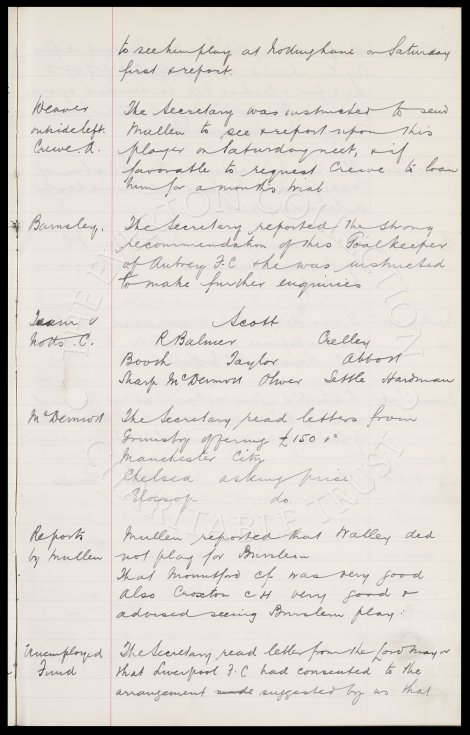 to see him play at Nottingham on Saturday
first & report.
Weaver
outside left.
Crewe A.
The Secretary was instructed to send
Mullen to see & report upon this
player on Saturday next, & if
favorable to request Crewe to loan
him for a months trial
Barnsley.
The Secretary reported the strong
recommendation of this Goalkeeper
of Aintree F.C & he was instructed
to make further enquiries
Team v
Notts. C.
Scott
R Balmer Crelley
Booth Taylor Abbott
Sharp McDermott Oliver Settle Hardman
McDermott
The Secretary read letters from
Grimsby offering £150
Manchester City
Chelsea asking price
Glossop do.
Reports
by Mullen
Mullen reported that Walley did
not play for Burslem
That Mountford cf was very good
Also Croxton c H very good &
advised seeing Burslem play.
Unemployed
Fund
The Secretary read letter from the Lord Mayor
that Liverpool F.C had consented to the
arrangement made suggested by us that
THE EVERTON COLLECTION
CHARITABLE TRUST